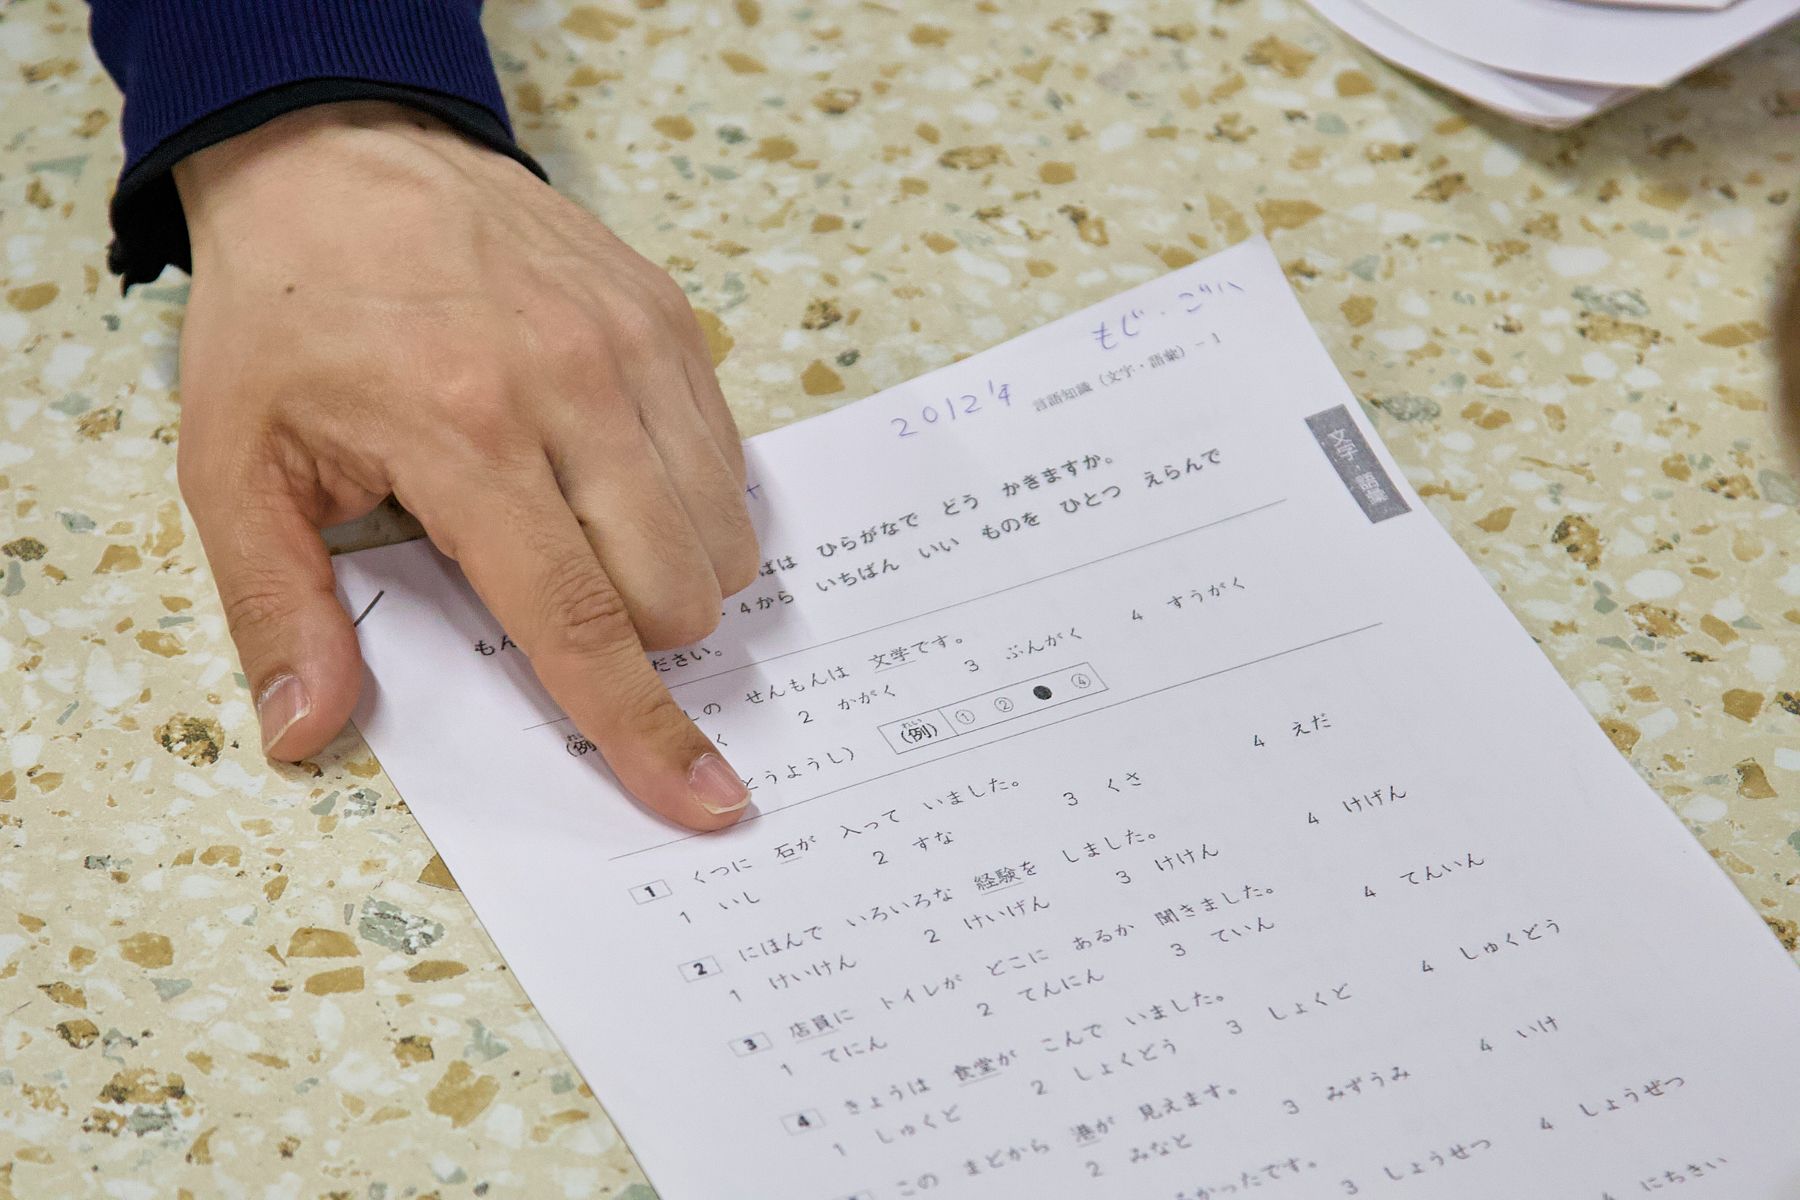 もじ・ごい
2012年
言語知識（文字・語彙）－1
文字・語彙
ばは ひらがなで どう かきますか。
・4から いちばん いい ものを ひとつ えらんで
ださい。
しの せんもんは 文学です。
く 2 かがく 3 ぶんがく 4 すうがく
とうようし） （例） れい ① ② ● ④
1 くつに 石が 入って いました。
1 いし 2 すな 3 くさ 4 えだ
2 にほんで いろいろな 経験を しました。
1 けいけん 2 けいげん 3 けけん 4 けげん
3 店員に トイレが どこに あるか 聞きました。
1 てにん 2 てんにん 3 ていん 4 てんいん
4 きょうは 食堂が こんで いました。
1 しゅくど 2 しょくどう 3 しょくど 4 しゅくどう
この まどから 港が 見えます。
2 みなと 3 みずうみ 4 いけ
かったです。
3 しょうせつ 4 しょうぜつ
にちさい